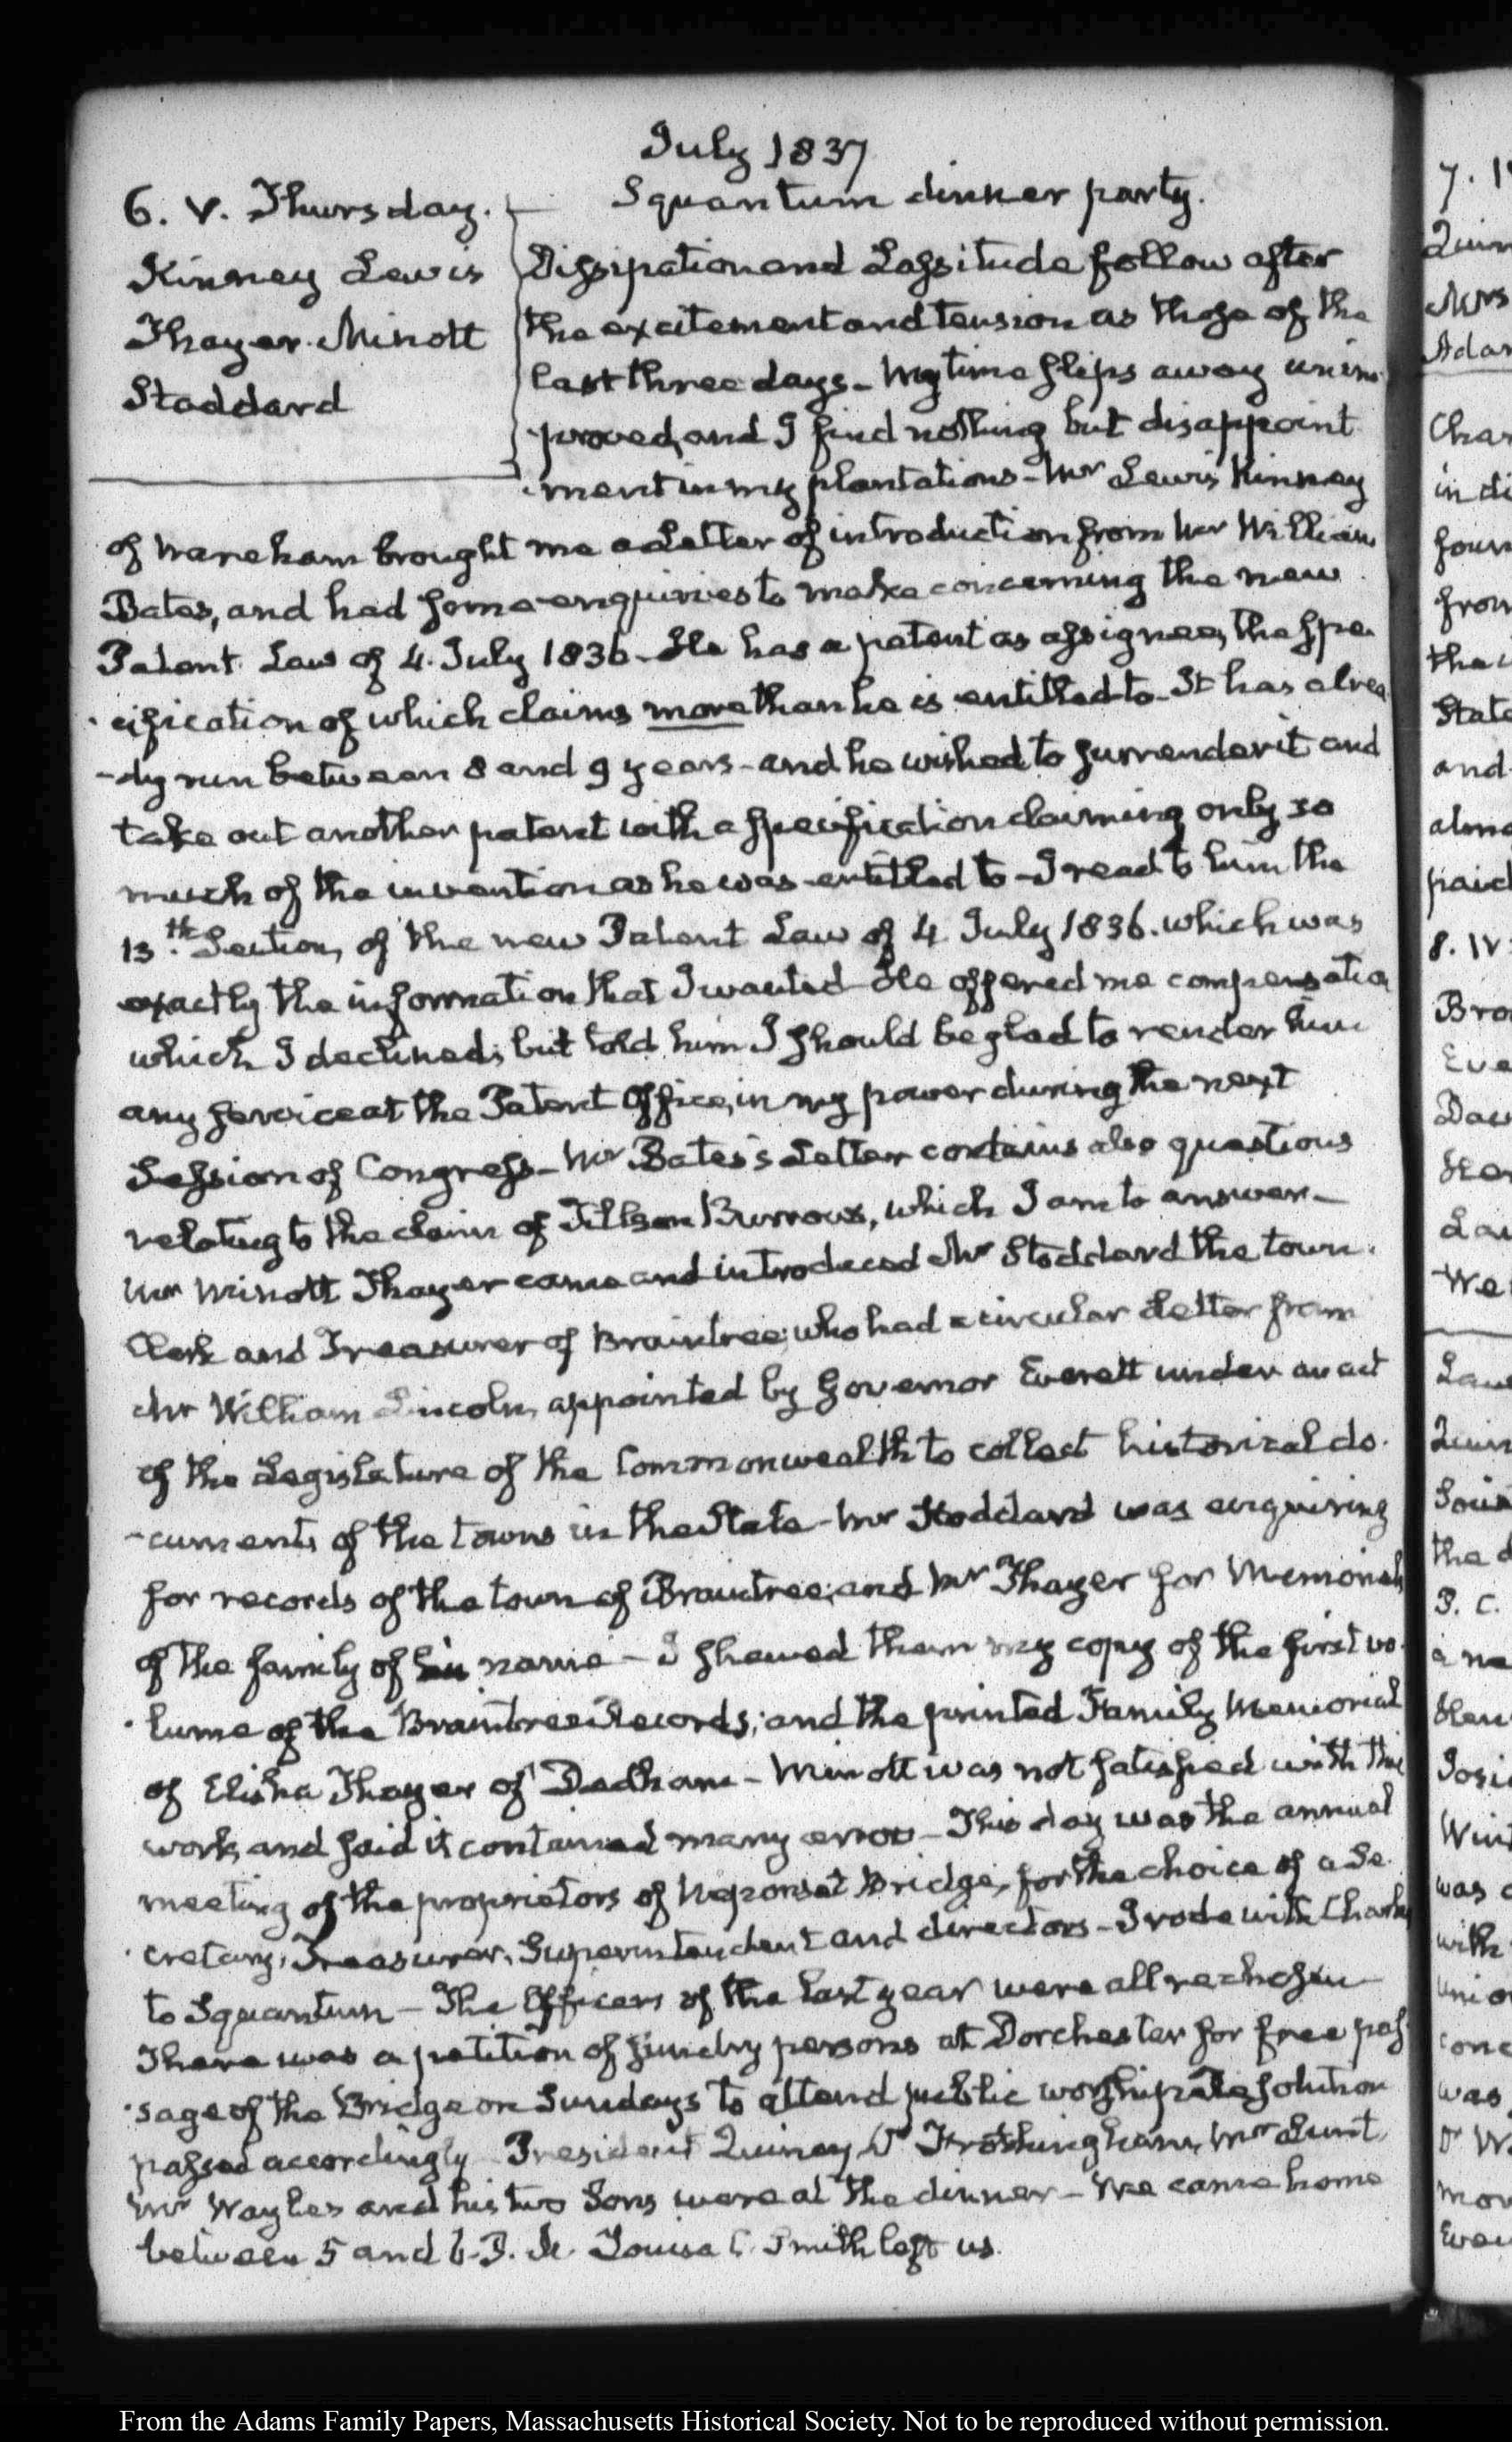 July 1837
6. V. Thursday.
Squantum dinner party.
Kinney Lewis
Thayer. Minott
Stoddard
Dissipation and Lassitude follow after
the excitement and tension as those of the
last three days - My time slips away unim-
proved, and I find nothing but disappoint
ment in my plantations - Mr Lewis Kinney
of Wareham brought me a Letter of introduction from Mr William
Bates, and had some enquiries to make concerning the new
Patent Law of 4. July 1836 - He has a patent as assignee, the spe-
cification of which claims more than he is entitled to - It has alrea
-dy run between 8 and 9 years - and he wished to surrender it and
take out another patent with a specification claiming only so
much of the invention as he was entitled to - I read to him the
13.th Section, of the new Patent Law of 4 July 1836. which was
exactly the information that I wanted - He offered me compensation
which I declined; but told him I should be glad to render him
any service at the Patent Office, in my power during the next
Session of Congress - Mr Bates's Letter contains also questions
relating to the claim of Tillson Burrows, which I am to answer -
Mr Minott Thayer came and introduced Mr Stoddard the town
Clerk and Treasurer of Braintree; who had a circular Letter from
Mr William Lincoln, appointed by Governor Everett under an act
of the Legislature of the Commonwealth to collect historical do-
-cuments of the towns in the State - Mr Stoddard was enquiring
for records of the town of Braintree; and Mr Thayer for Memorials
of the family of his name - I shewed them my copy of the first vo-
lume of the Braintree Records; and the printed Family Memorial
of Elisha Thayer of Dedham - Minott was not satisfied with this
work, and said it contained many errors - This day was the annual
meeting of the proprietors of Neponset Bridge, for the choice of a Se-
cretary, Treasurer, Superintendent and directors - I rode with Charles
to Squantum - The Officers of the last year were all rechosen -
There was a petition of sundry persons at Dorchester for free pas-
sage of the Bridge on Sundays to attend public worship, a Resolution
passed accordingly President Quincy, Dr Frothingham, Mr Lunt,
Mr Wayles and his two Sons were at the dinner - We came home
between 5 and 6. P. M. Louisa C. Smith left us.
7. 1
Quin
Mrs
Adam
Char
in di
foun
from
the
State
and
almo
paid
8. IV
Bro
Eve
Daw
Lau
We
Quin
the d
P. C.
a ne
Josi
Win
was
with
Unio
conc
was
Mor
From the Adams Family Papers, Massachusetts Historical Society. Not to be reproduced without permission.